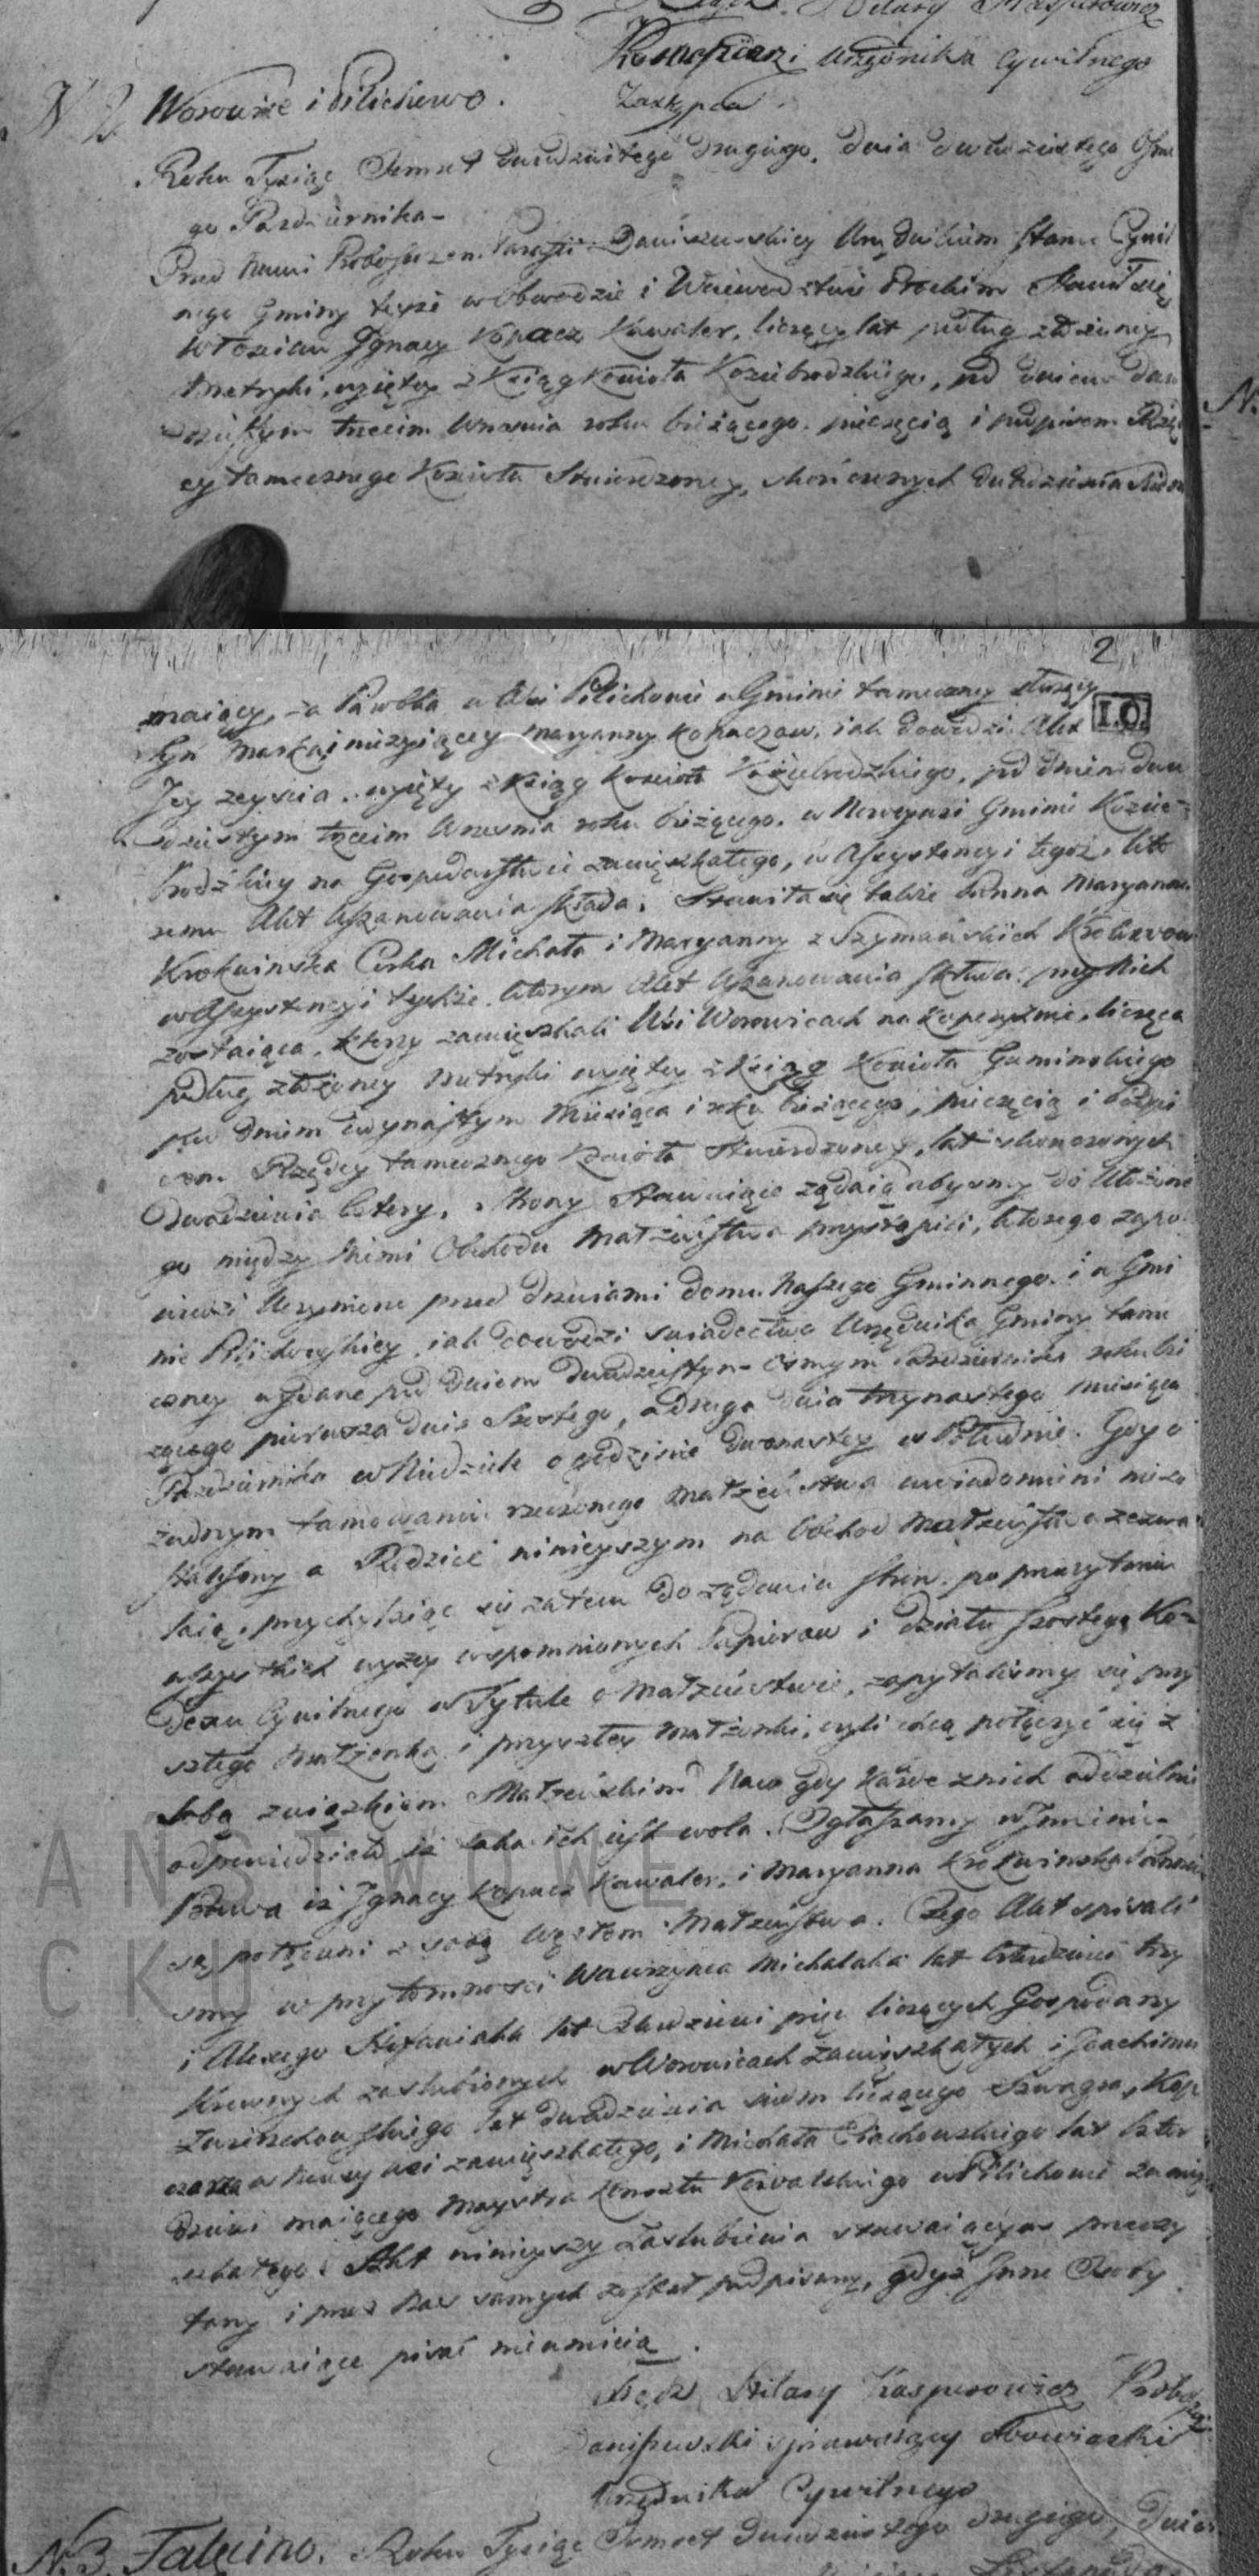 Xiądz Hilary Kasperowicz
Urzędnika Cywilnego
Zastępca
N 2 Worowice i Pilichowo.
Roku Tysiąc Osmset dwudziestego drugiego, dnia dwudziestego Osme
go Pazdziernika
Przed Nami Proboszczem Parafii Daniszewskiey Urzędnikiem Stanu Cywil
nego Gminy teyże w Obwodzie i Woiewodztwie Płockim Stawił się
Włoscian Ignacy Kopacz Kawaler, liczący lat podług złożoney
Metryki, wyiętey z Xiąg Koscioła Koziebrodzkiego, pod dniem dwu
dziestym trzecim Wrzesnia roku bieżącego, pieczęcią i podpisem Rzą
cy tamecznego Koscioła Stwierdzoney, skończonych dwadziescia siedm
maiący, za Parobka w Wsi Pilichowie w Gminie tameczney służący
Syn Macieia i nieżyiącey Maryanny Kopaczow, iak dowodzi Akt
Jey zeyscia, wyięty z Xiąg Koscioła Koziebrodzkiego, pod dniem dwu
dziestym trzecim Wrzesnia roku bieżącego, w Noweywsi Gminie Kozie
brodzkiey na Gospodarstwie zamieszkałego, w Assystencyi tegoż, któ
remu Akt Uszanowania składa. Stawiła się także Panna Maryanna
Krokwinska Corka Michała i Maryanny z Szymańskich
w Assystencyi tychże, którym Akt Uszanowania składa, przy Nich
zostaiąca, którzy zamieszkali Wsi Worowicach na, licząca
podług złożoney Metryki wyiętey z Xiąg Koscioła Gumińskiego
pod dniem Miesiąca i roku bieżącego, pieczęcią i podpi
sem Rządcy tamecznego Koscioła Stwierdzoney, lat skonczonych
dwadziescia cztery. Strony Stawaiące żądaią abysmy do Ułożone
go między Niemi Obchodu Małżeństwa przystąpili, którego zapo
wiedzi Uczynione przed drzwiami domu Naszego Gminnego, i w Gmi
nie Pilichowskiey, iak dowodzi swiadectwo Urzędnika Gminy tame
czney wydane pod dniem dwudziestym osmym Pazdziernika roku bie
żącego pierwsza dnia Szostego, a druga dnia trzynastego miesiąca
Pazdziernika w Niedziele o godzinie dwanastey w Południe. Gdy o
żadnym tamowaniu rzeczonego Małżeństwa uwiadomieni nie zo
stalismy a Rodzice ninieyszym na Obchod Małżeństwa zezwa
laią, przychylaiąc się zatem do żądania Stron, po przeczytaniu
wszystkich wyżey wspomnionych Papierow i działu szostego Ko
dexu Cywilnego w Tytule o Małżeństwie, zapytalismy się przy
szłego Małżonka i przyszłey Małżonki, czyli chcą połączyć się z
Sobą związkiem Małżeńskim? Na co gdy każde z nich oddzielnie
odpowiedziało, iż taka ich iest wola. Ogłaszamy w Imieniu
Prawa iż Ignacy Kopacz Kawaler, i Maryanna Krokwinska Panna
są połączeni z sobą węzłem Małżeństwa. Czego Akt spisali
smy w przytomnosci Wawrzynca Michalaka lat trzy
i Alexego Stefaniaka lat pięc liczących Gospodarzy
Krewnych zaslubionych w Worowicach zamieszkałych i Joachima
lat dwadziescia siedm liczącego Szwagra,
w Nowey wsi zamieszkałego, i Michała Ciachowskiego lat czter
dziesci maiącego Maystra Kunsztu Kowalskiego w Pilichowie zamie
szkałego. Akt ninieyszy Zaslubienia stawaiącym przeczy
tany i przez Nas samych został podpisany, gdyż Inne Osoby
stawaiące pisać nieumieią.
Xiądz Hilary Kasperowicz Proboszcz
Daniszewski sprawuiący Obowiązki
Urzędnika Cywilnego
N. 3. Falęcino. Roku Tysiąc Osmset Dwudziestego drugiego, Dnia
2
I.O.
ANSTWOWE
CKU